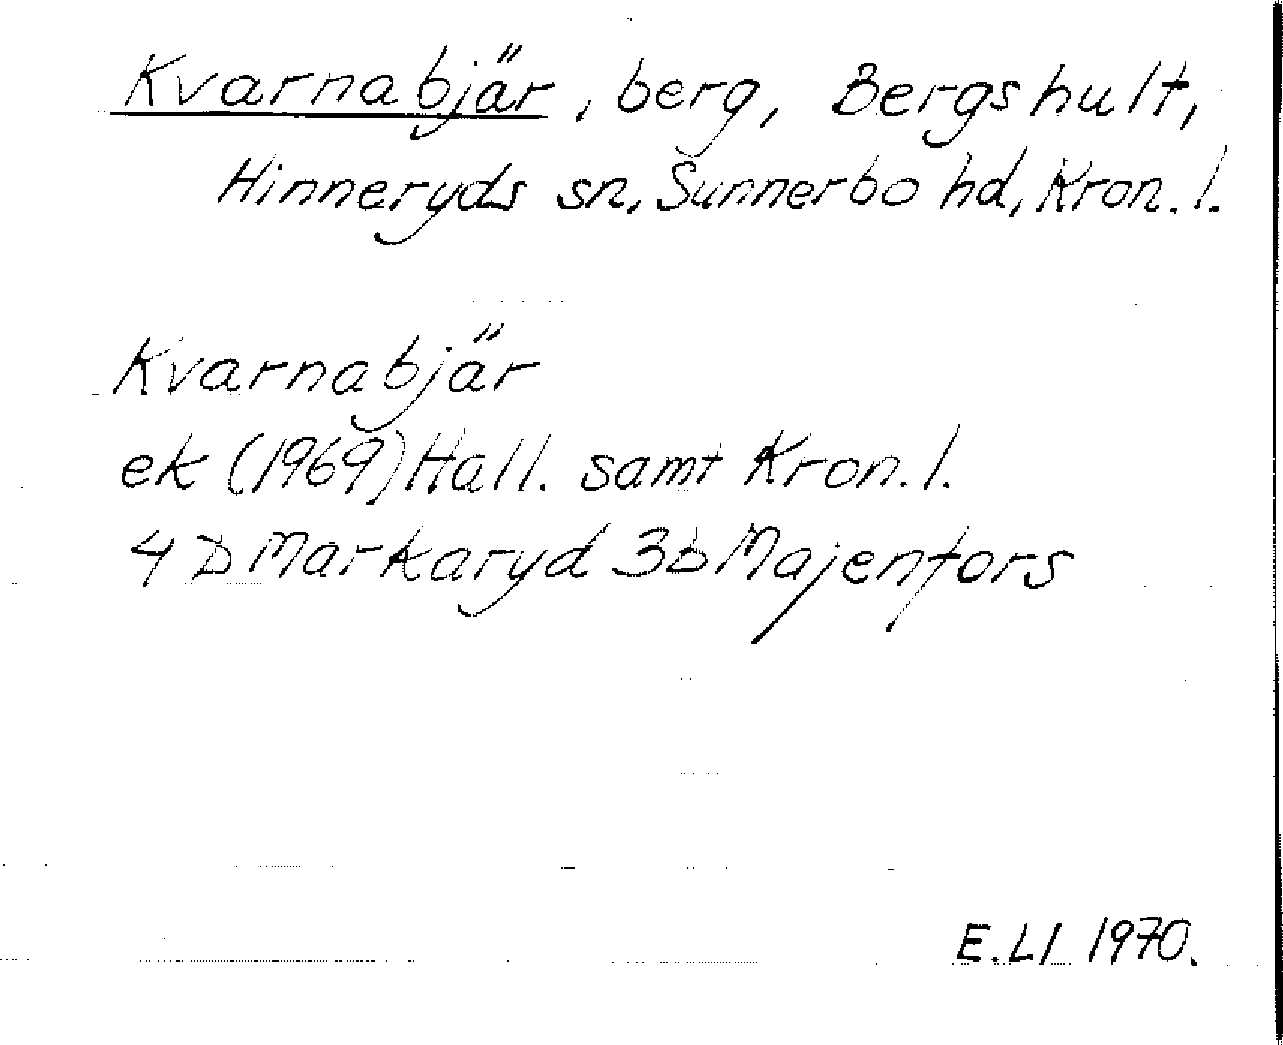 Kvarnabjär, berg, Bergshult,
Hinneryds sn, Sunnerbo hd, Kron. l.
Kvarnabjär
ek (1969) Hall. samt Kron. l.
4 D Markaryd 3b Majenfors
E. LI 1970.